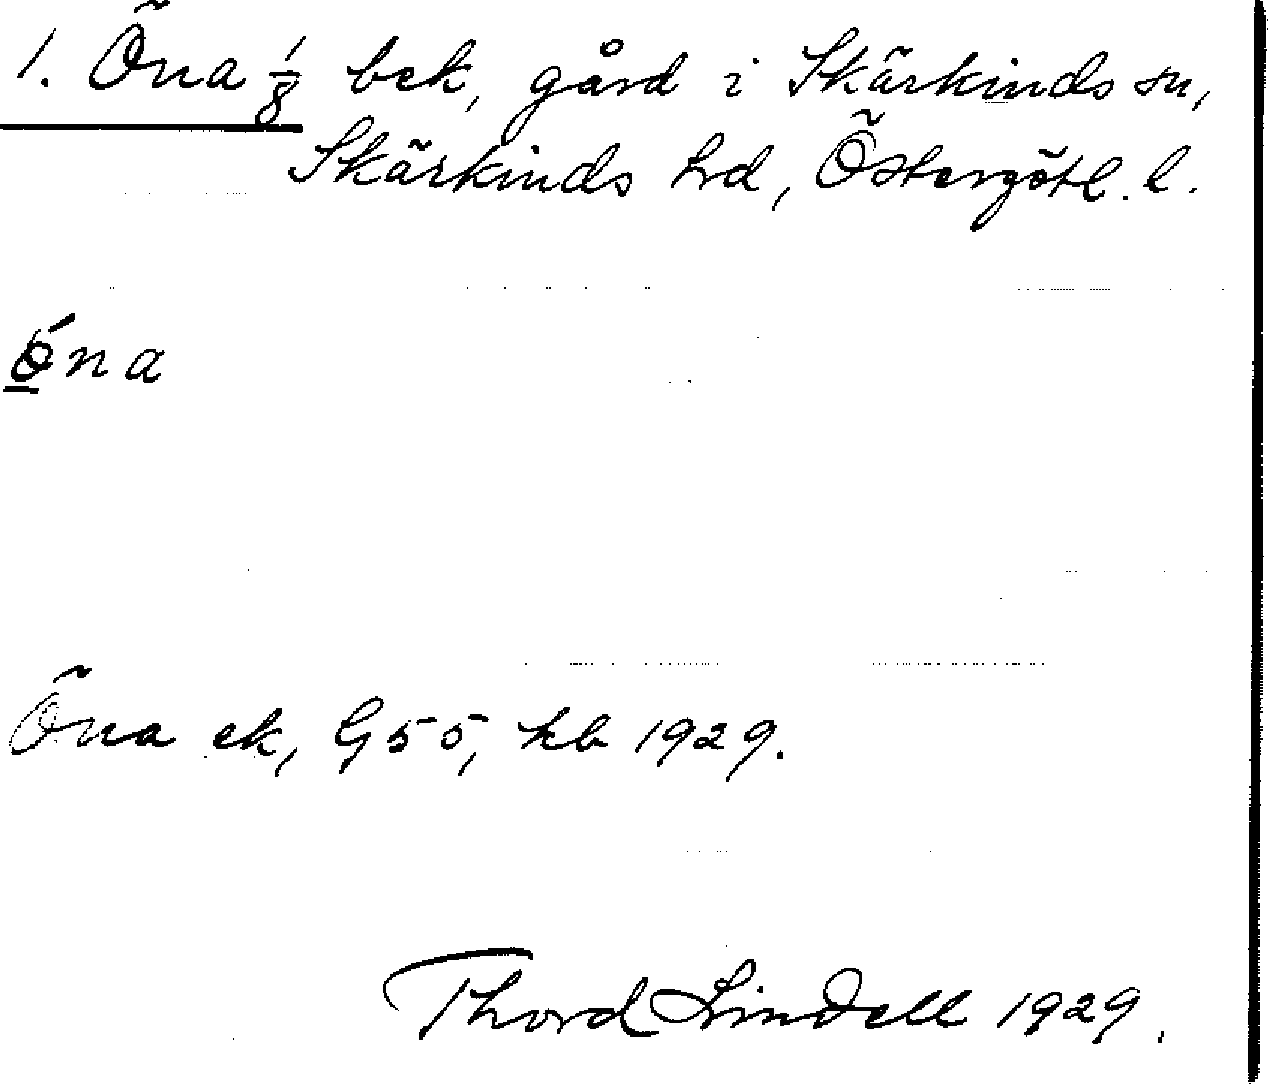 1. Öna 1/8 bek, gård i Skärkinds sn,
Skärkinds hd, Östergötl. l.
ǿna
Öna ek, G55, kb 1929.
Thord Lindell 1929.